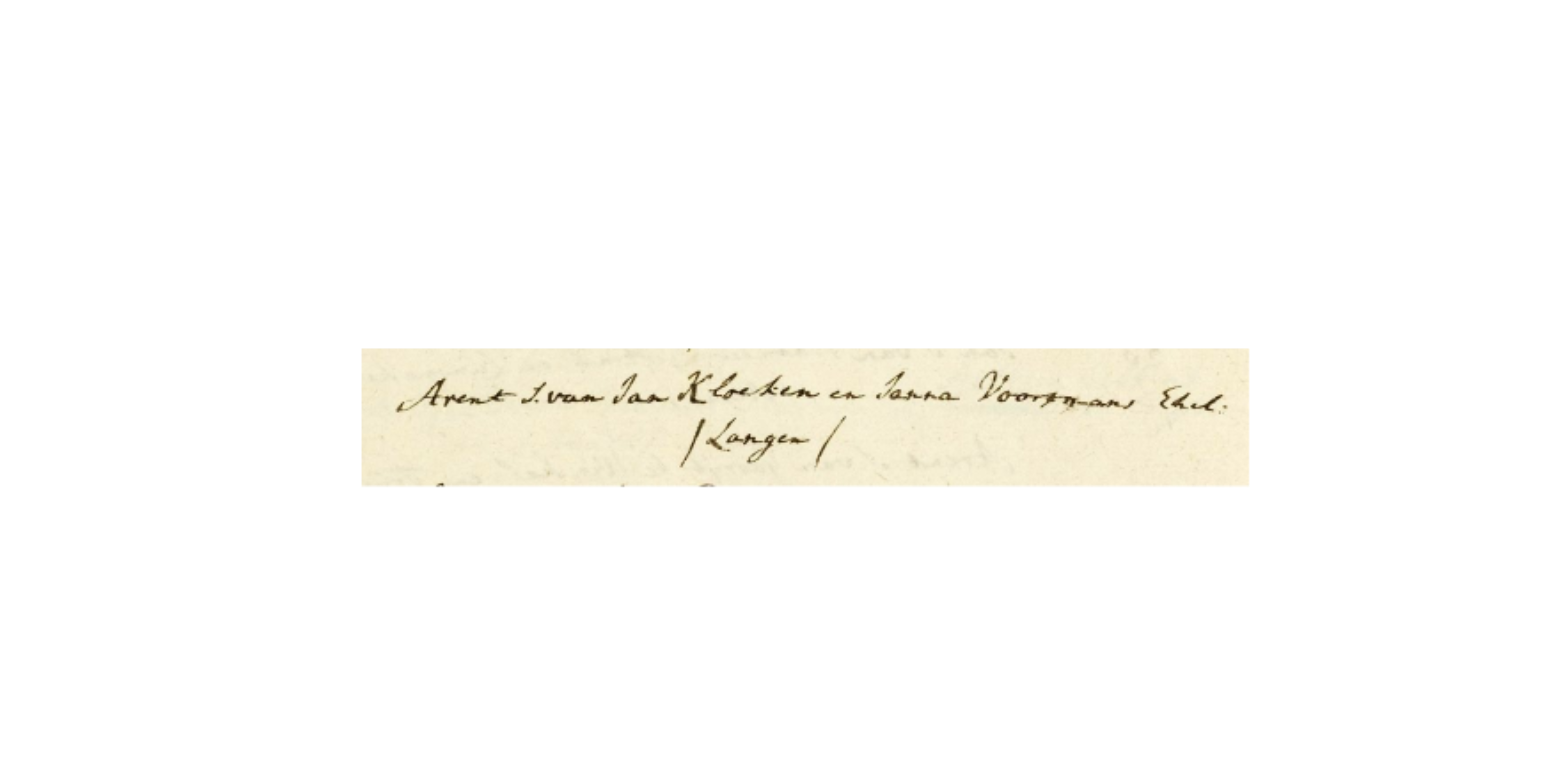 Arent S. van Jan Kloeken en Janna Voorsmans Ehel:
/ Langen /